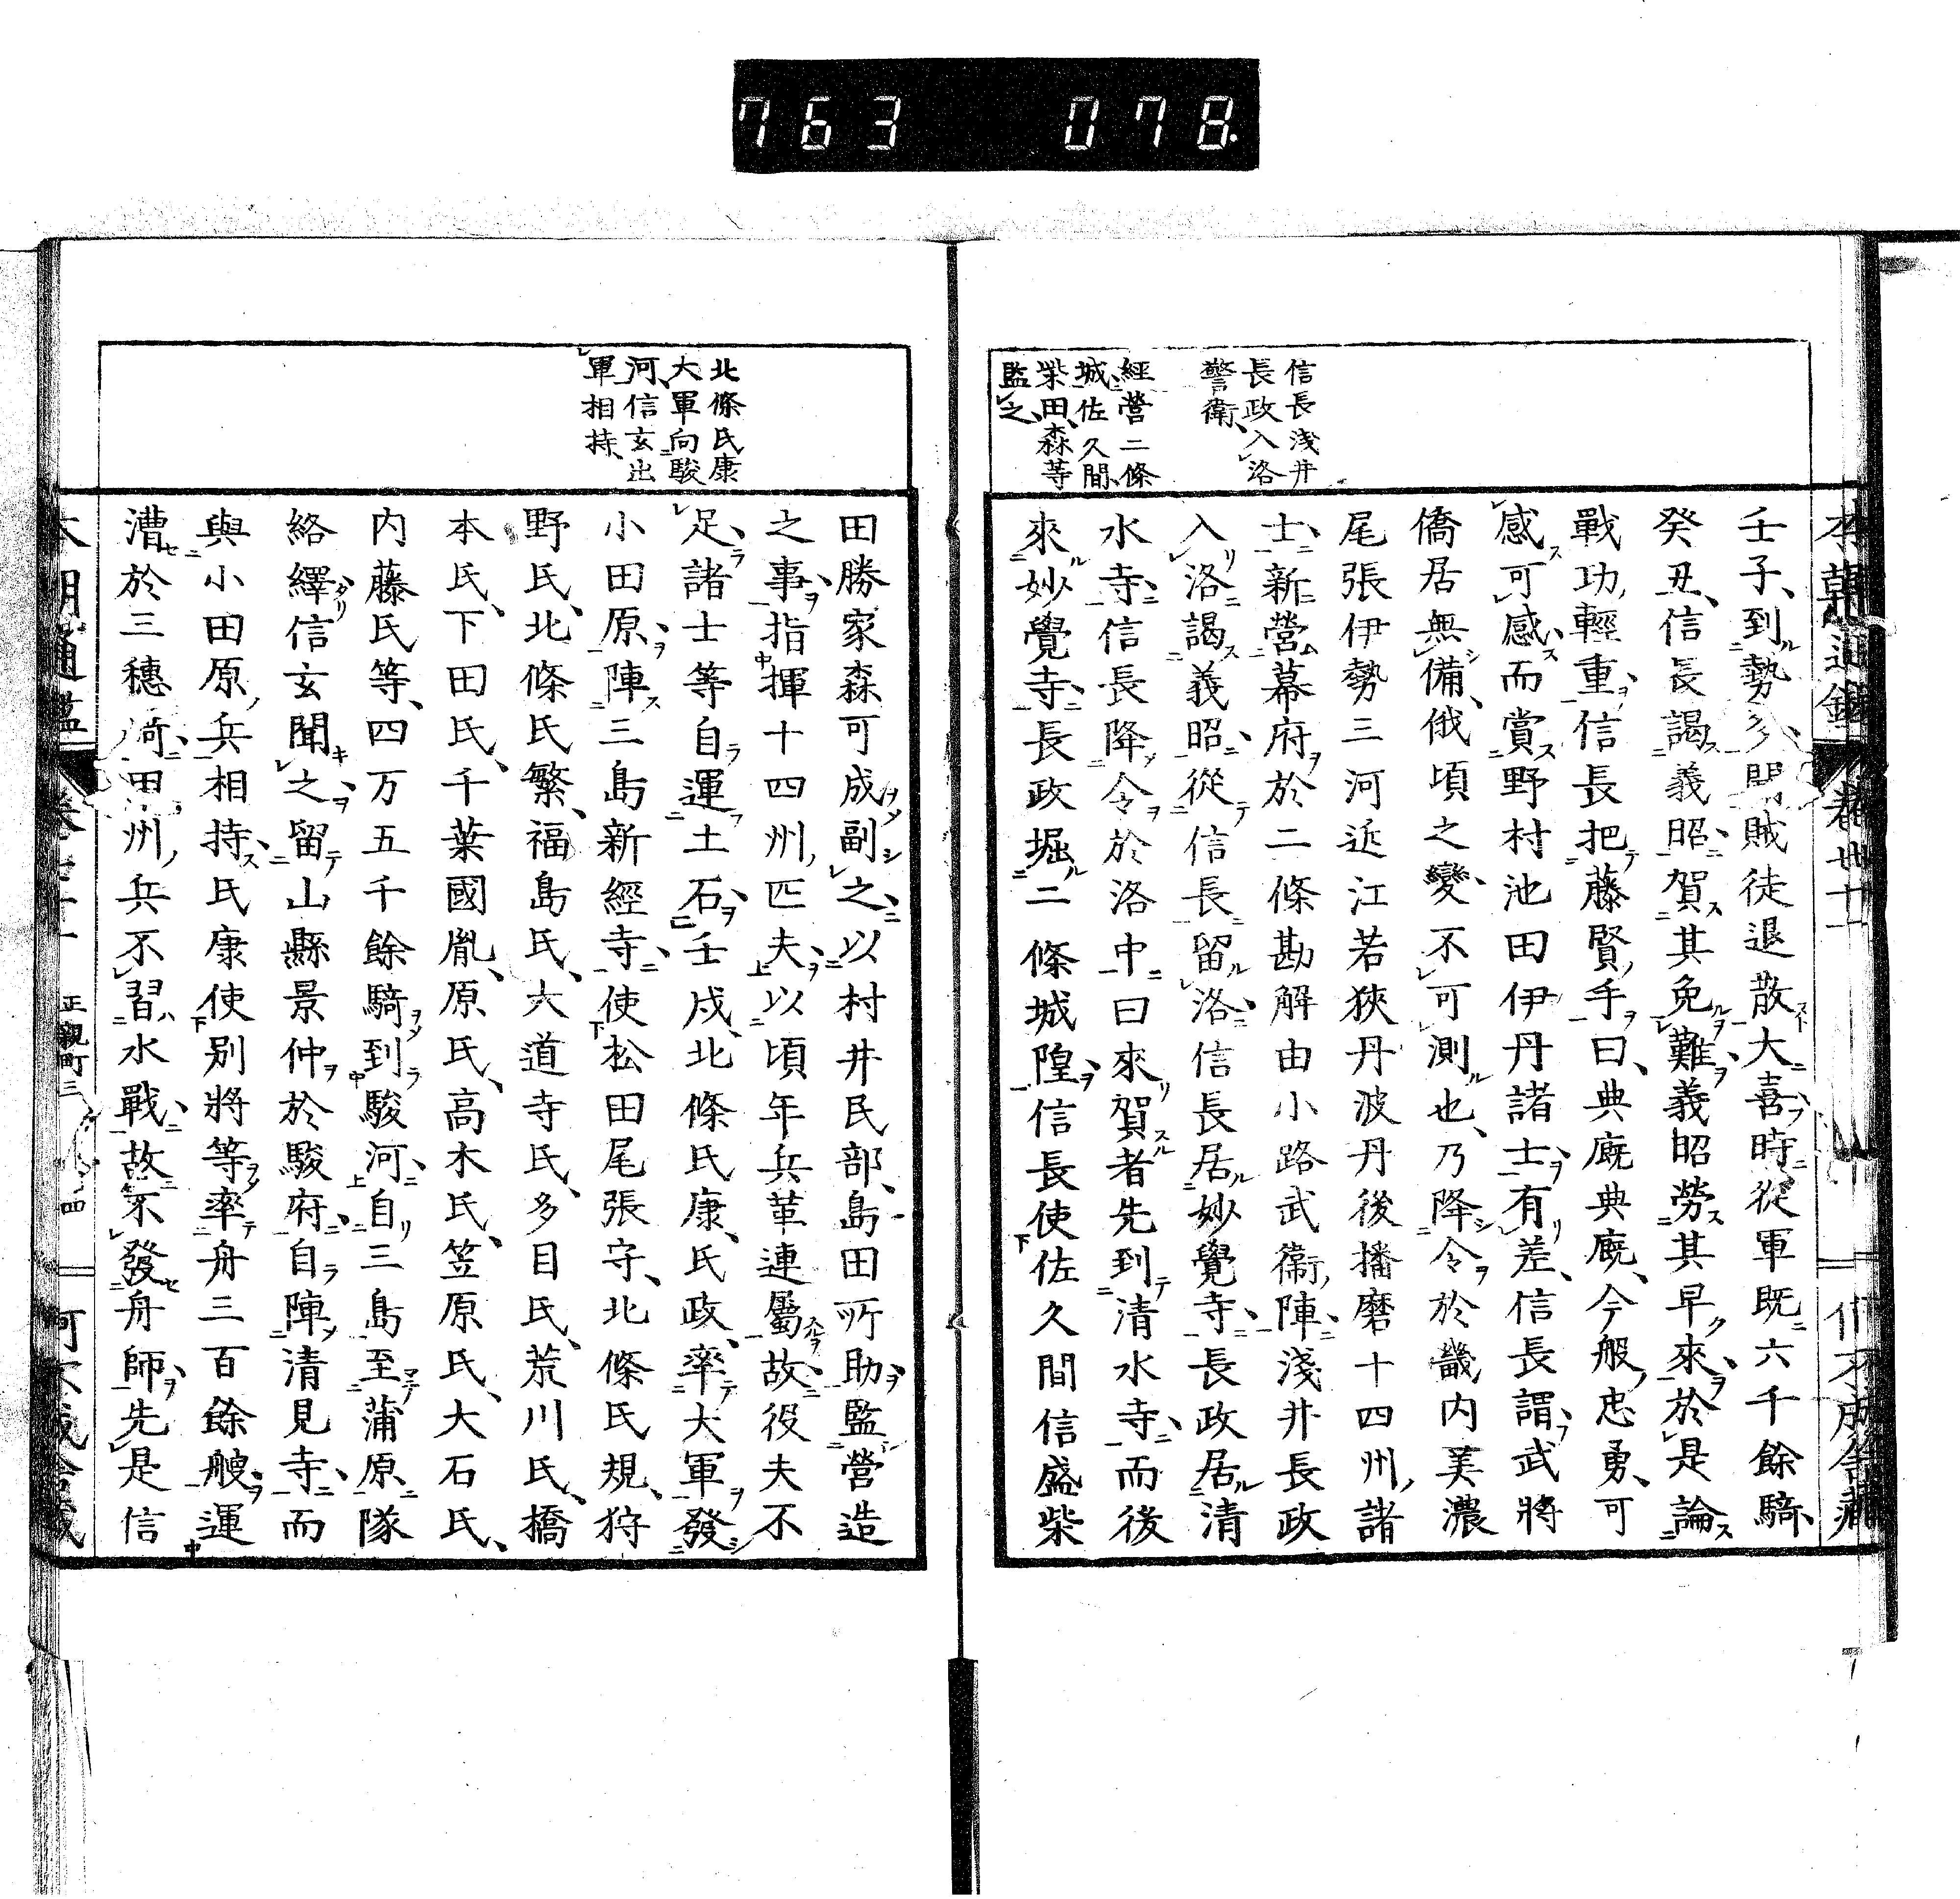 763 078.
信長淺井
長政入洛
警衛、
經營二條
城、佐久間、
柴田、森等
監之、
壬子、到勢多、聞賊徒退散大喜時從軍既六千餘騎、
癸丑、信長謁義昭、賀其免難、義昭勞其早來、於是論
戰功輕重、信長把藤賢手曰、典廐典廐、今般忠勇、可
感可感、而賞野村池田伊丹諸士、有差、信長謂、武將
僑居無備、俄頃之變、不可測也、乃降令於畿内美濃
尾張伊勢三河近江若狹丹波丹後播磨十四州諸
士、新營幕府於二條勘解由小路武衞陣、淺井長政
入洛謁義昭、從信長、留洛、信長居妙覺寺、長政居清
水寺、信長降令於洛中曰、來賀者先到清水寺、而後
來妙覺寺、長政堀二條城隍、信長使佐久間信盛柴
北條氏康
大軍向駿
河、信玄出
軍相持、
田勝家森可成副之、以村井民部、島田所助、監營造
之事、指揮十四州匹夫、以頃年兵革連屬、故役夫不
足、諸士等自運土石、壬戌、北條氏康、氏政、率大軍發
小田原、陣三島新經寺、使松田尾張守、北條氏規、狩
野氏、北條氏繁、福島氏、大道寺氏、多目氏、荒川氏、橋
本氏、下田氏、千葉國胤、原氏、高木氏、笠原氏、大石氏、
内藤氏等、四万五千餘騎到駿河、自三島至蒲原、隊
絡繹信玄聞之、留山縣景仲於駿府、自陣清見寺、而
與小田原兵相持、氏康使別將等率舟三百餘艘、運
漕於三穗﨑、甲州兵不習水戰、故不發舟師、先是信
正親町三 四